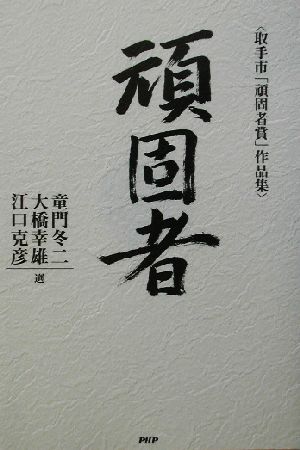 〈取手市「頑固者賞」作品集〉
頑固者
童門冬二
大橋幸雄
江口克彦
選
PHP